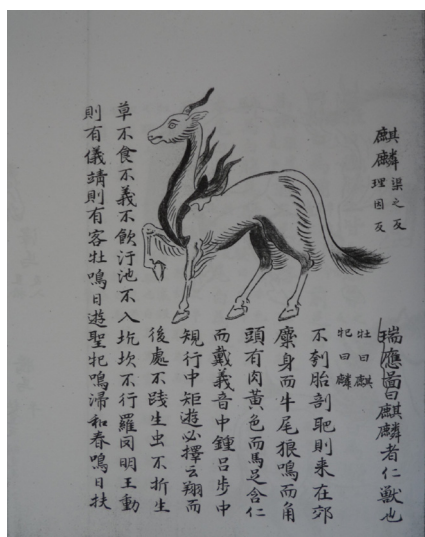 麒麟
梁之反
理因反
瑞應啚曰麒麟者仁獸也
牡曰麒
牝曰麟
不刳胎剖則来在郊
麋身而牛尾狼鳴而角
頭有肉黄色而馬足含仁
而戴義音中鍾吕步中
規行中矩遊必擇云翔而
後處不踐生虫不折生
草不食不義不飲汙池不入坑坎不行羅罔明王動
則有儀靖則有客牡鳴日遊聖牝鳴歸和春鳴日扶